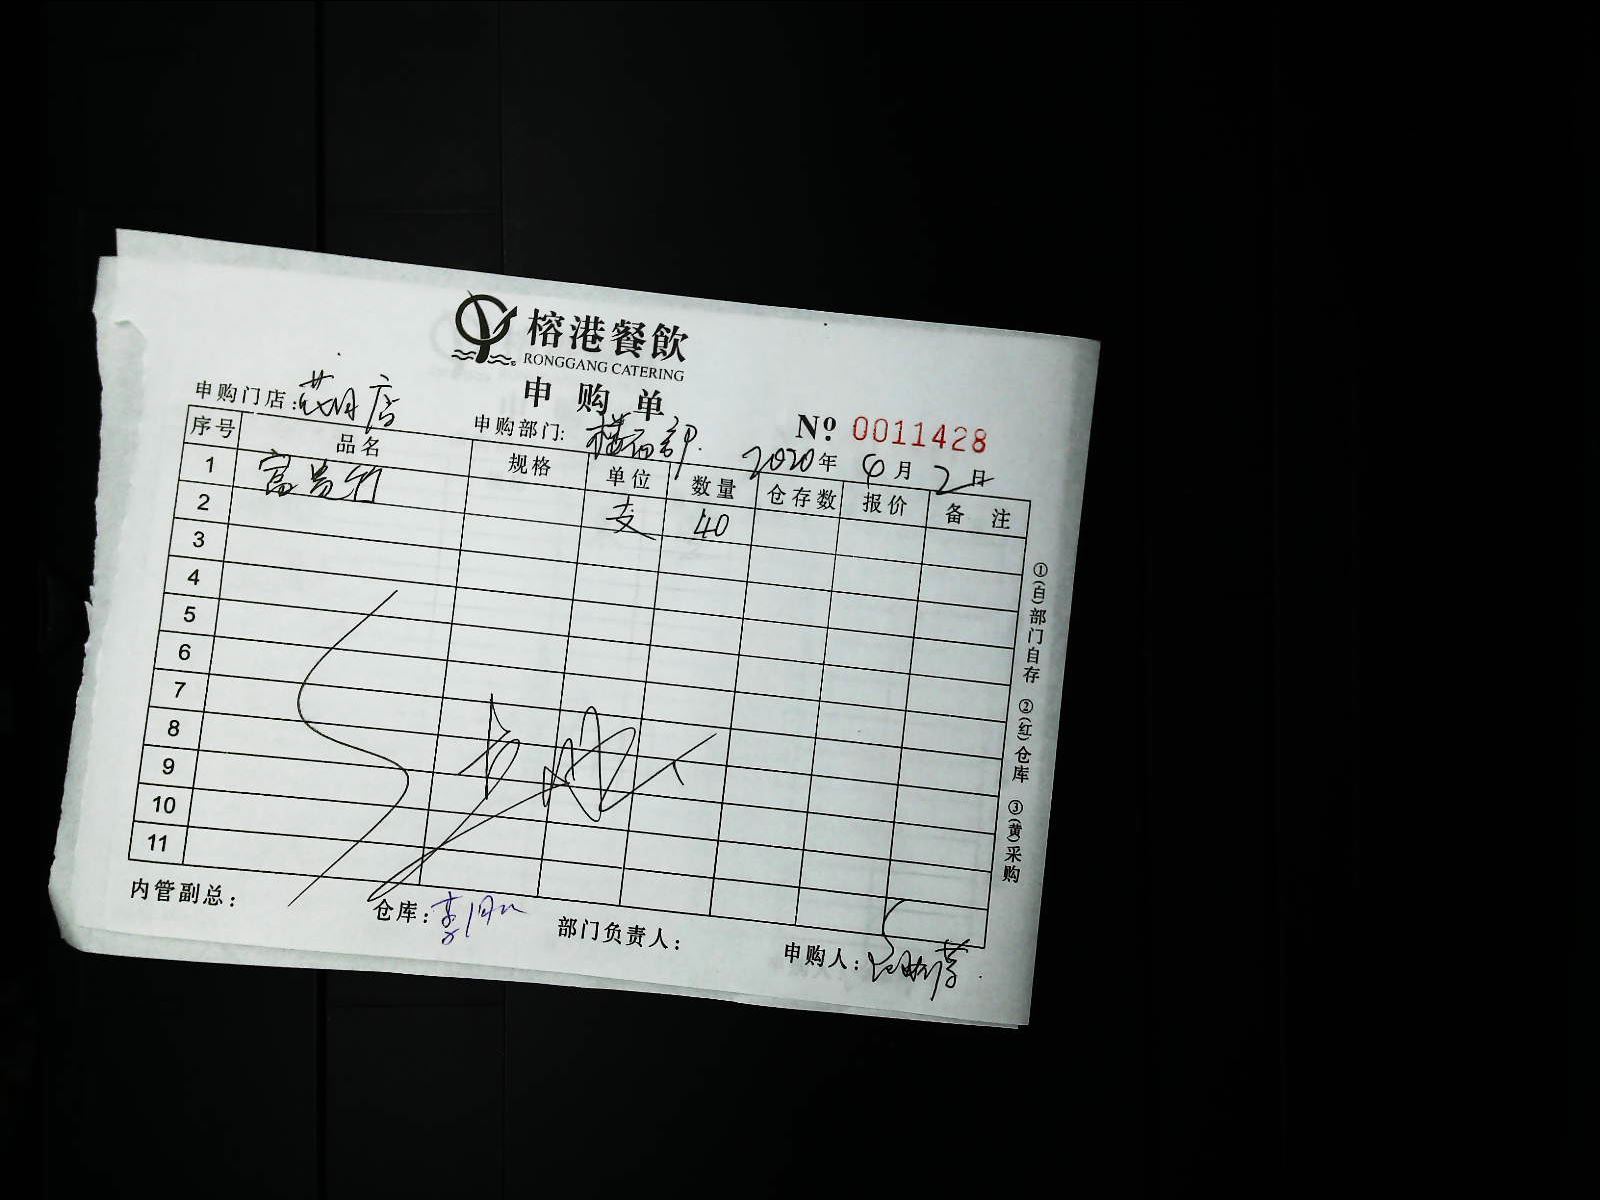 榕港餐飲
RONGGANG CATERING
申购单
申购门店: 店
申购部门: 楼面部
№ 0011428
2020年 4月 2日
序号 品名 规格 单位 数量 仓存数 报价 备 注
1 富贵竹 支 40
2
3
4
5
6
7
8
9
10
11
内管副总: 仓库: 部门负责人: 申购人:
①(白)部门自存 ②(红)仓库 ③(黄)采购